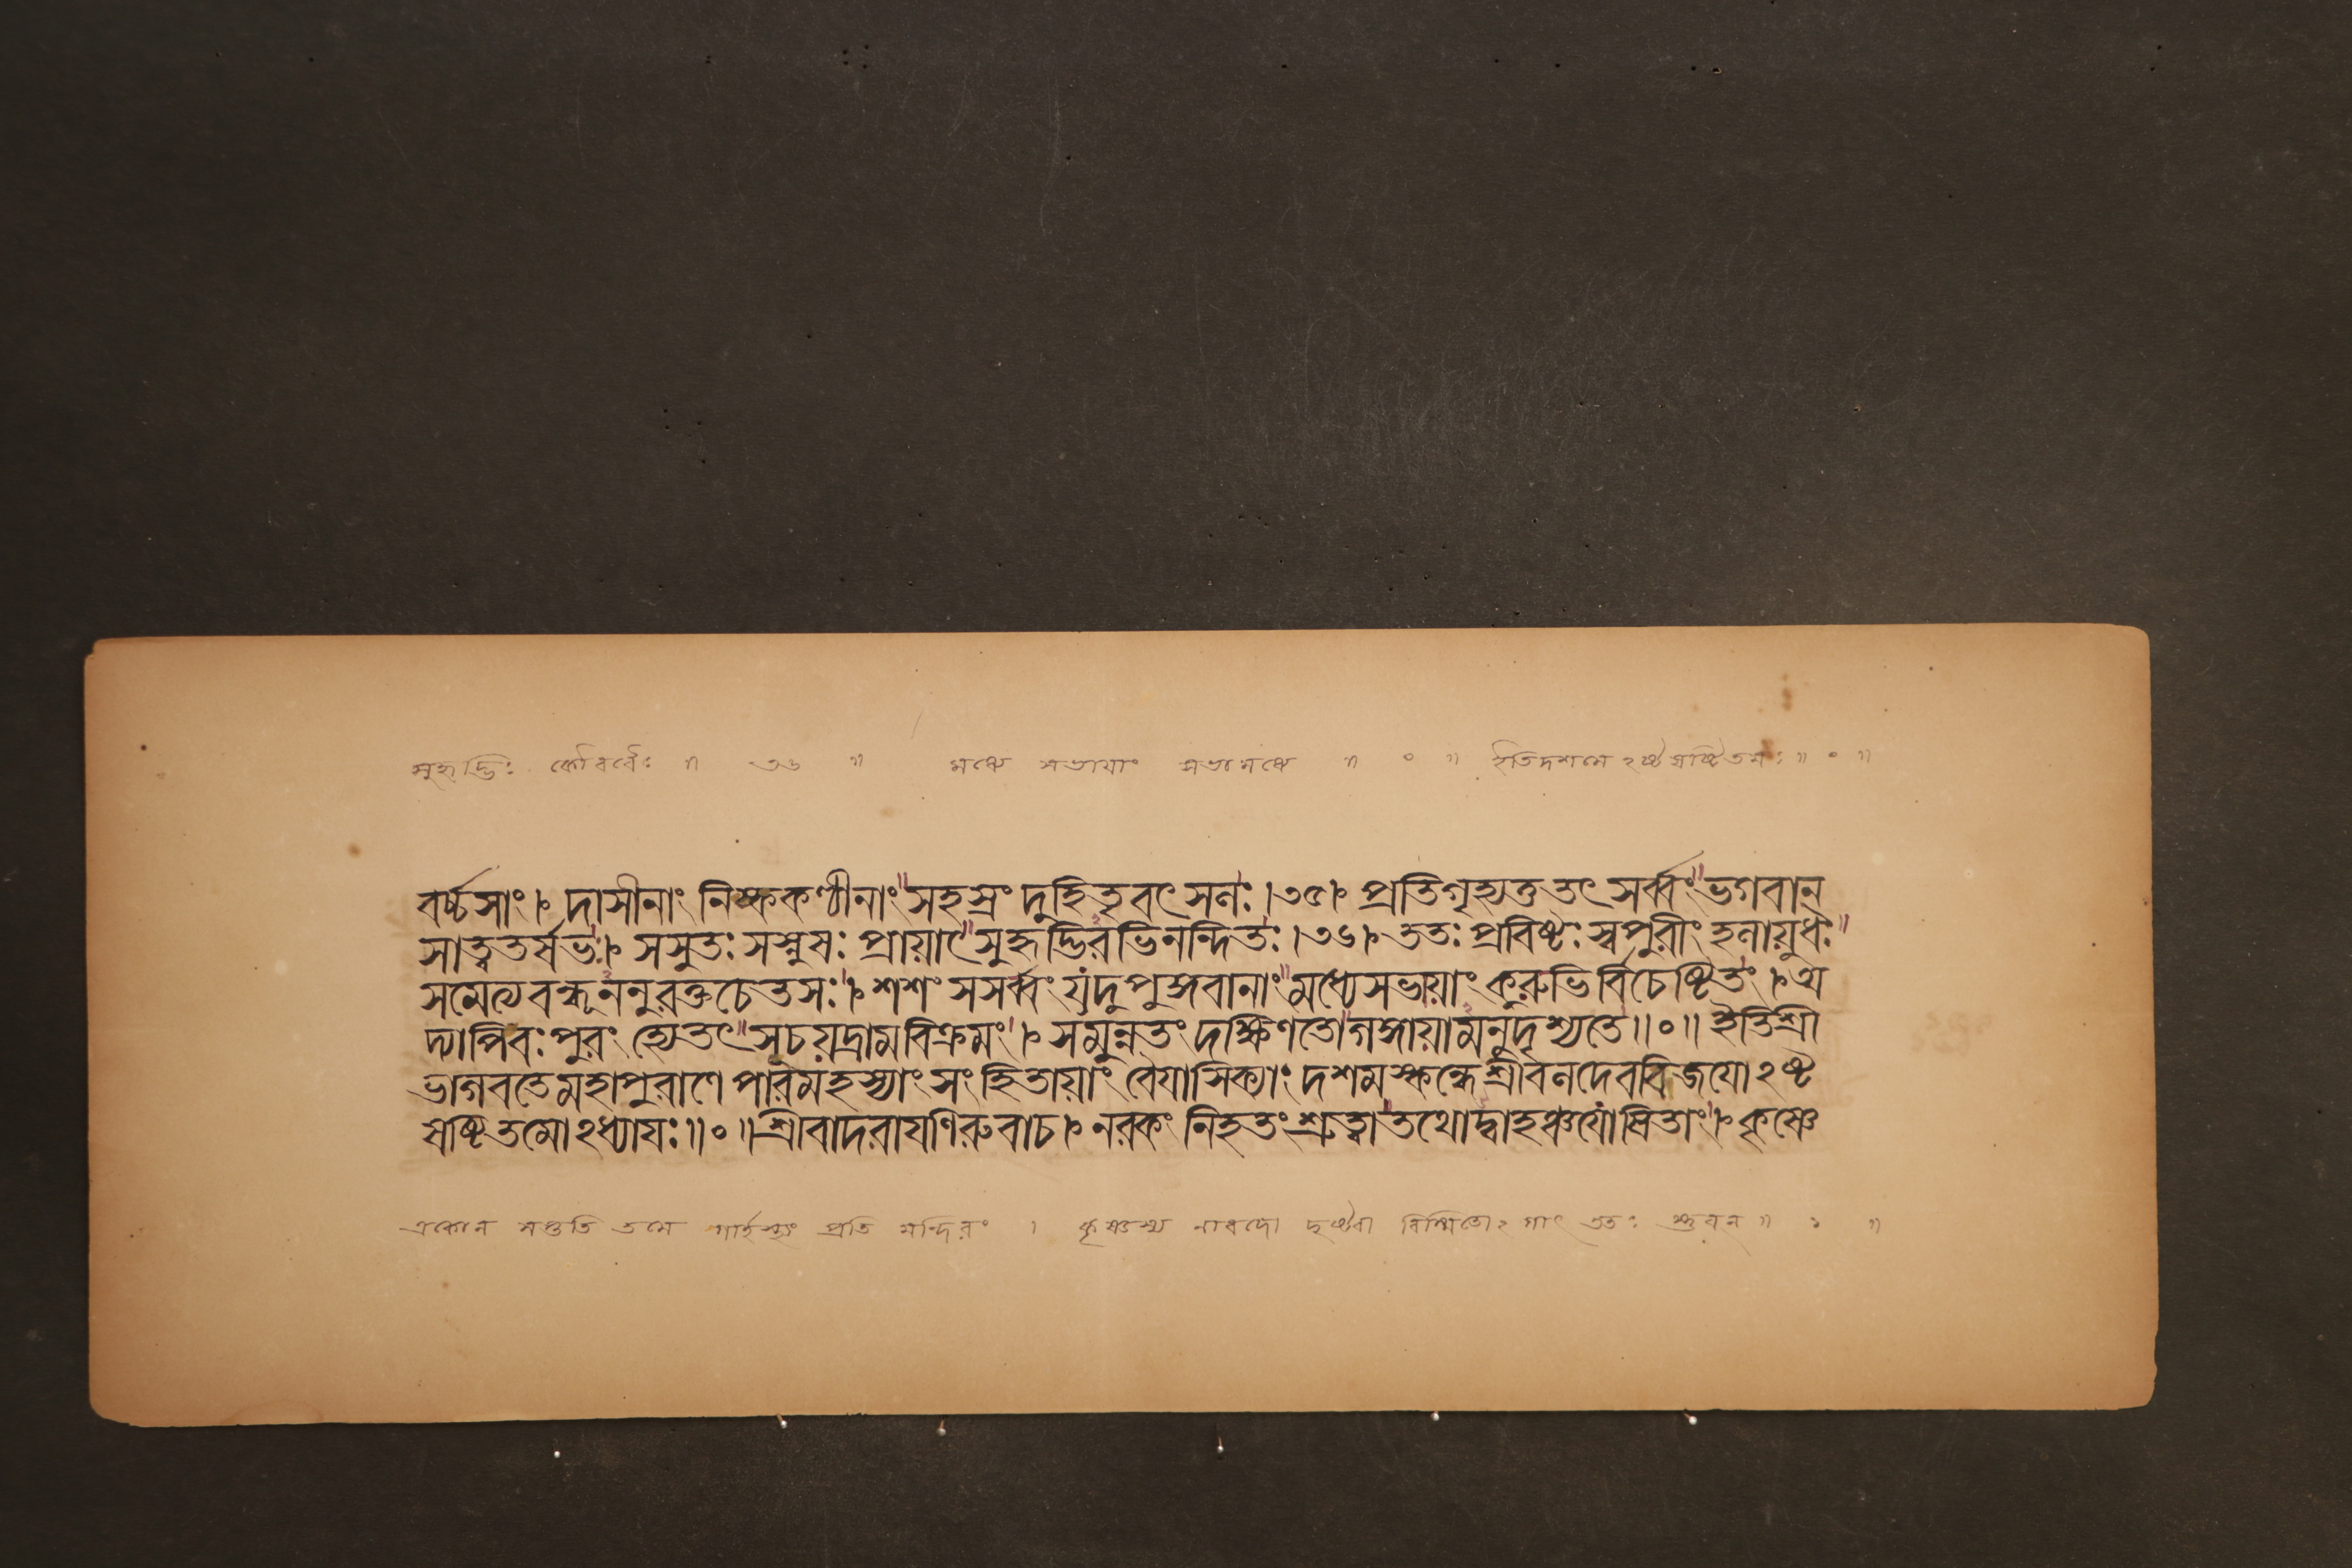 সুহৃদ্ভিঃ কৌরবৈঃ ॥ ৩৬ ॥ মধ্যে সভায়াং সভামধ্যে ॥ ० ॥ ইতিদশমেঽষ্টষষ্টিতমঃ ॥ ० ॥
বর্চ্চসাং । দাসীনাং নিষ্ককণ্ঠীনাং সহস্রং দুহিতৃবৎসলঃ ।৩৫। প্রতিগৃহ্যতুতৎ সর্ব্বং ভগবান্
সাত্বতর্ষভঃ । সসুতঃ সস্নুষঃ প্রায়াৎ সুহৃদ্ভিরভিনন্দিতঃ ।৩৬। ততঃ প্রবিষ্টঃ স্বপুরীং হলায়ুধঃ
সমেত্যবন্ধূননুরক্তচেতসঃ । শশংসসর্ব্বং যদুপুঙ্গবানাং মধ্যেসভায়াং কুরুভির্বিচেষ্টিতং । অ
দ্যাপিবঃপুরং হ্যেতৎ সূচয়দ্রামবিক্রমং । সমুন্নতং দক্ষিণতোগঙ্গায়ামনুদৃশ্যতে ॥ ० ॥ ইতিশ্রী
ভাগবতেমহাপুরাণে পারমহংস্যাং সংহিতায়াং বৈয়াসিক্যাং দশমস্কন্ধেশ্রীবলদেববিজয়োঽষ্ট
ষষ্টিতমোঽধ্যায়ঃ ॥ ० ॥ শ্রীবাদরায়ণিরুবাচ । নরকং নিহতংশ্রুত্বাতথোদ্বাহঞ্চযোষিতাং । কৃষ্ণে
একোন সপ্ততি তমে গার্হস্থ্যং প্রতি মন্দিরং । কৃষ্ণস্য নারদো দৃষ্ট্বা বিস্মিতোঽগাৎ ততঃ স্তুবন্ ॥ ১ ॥